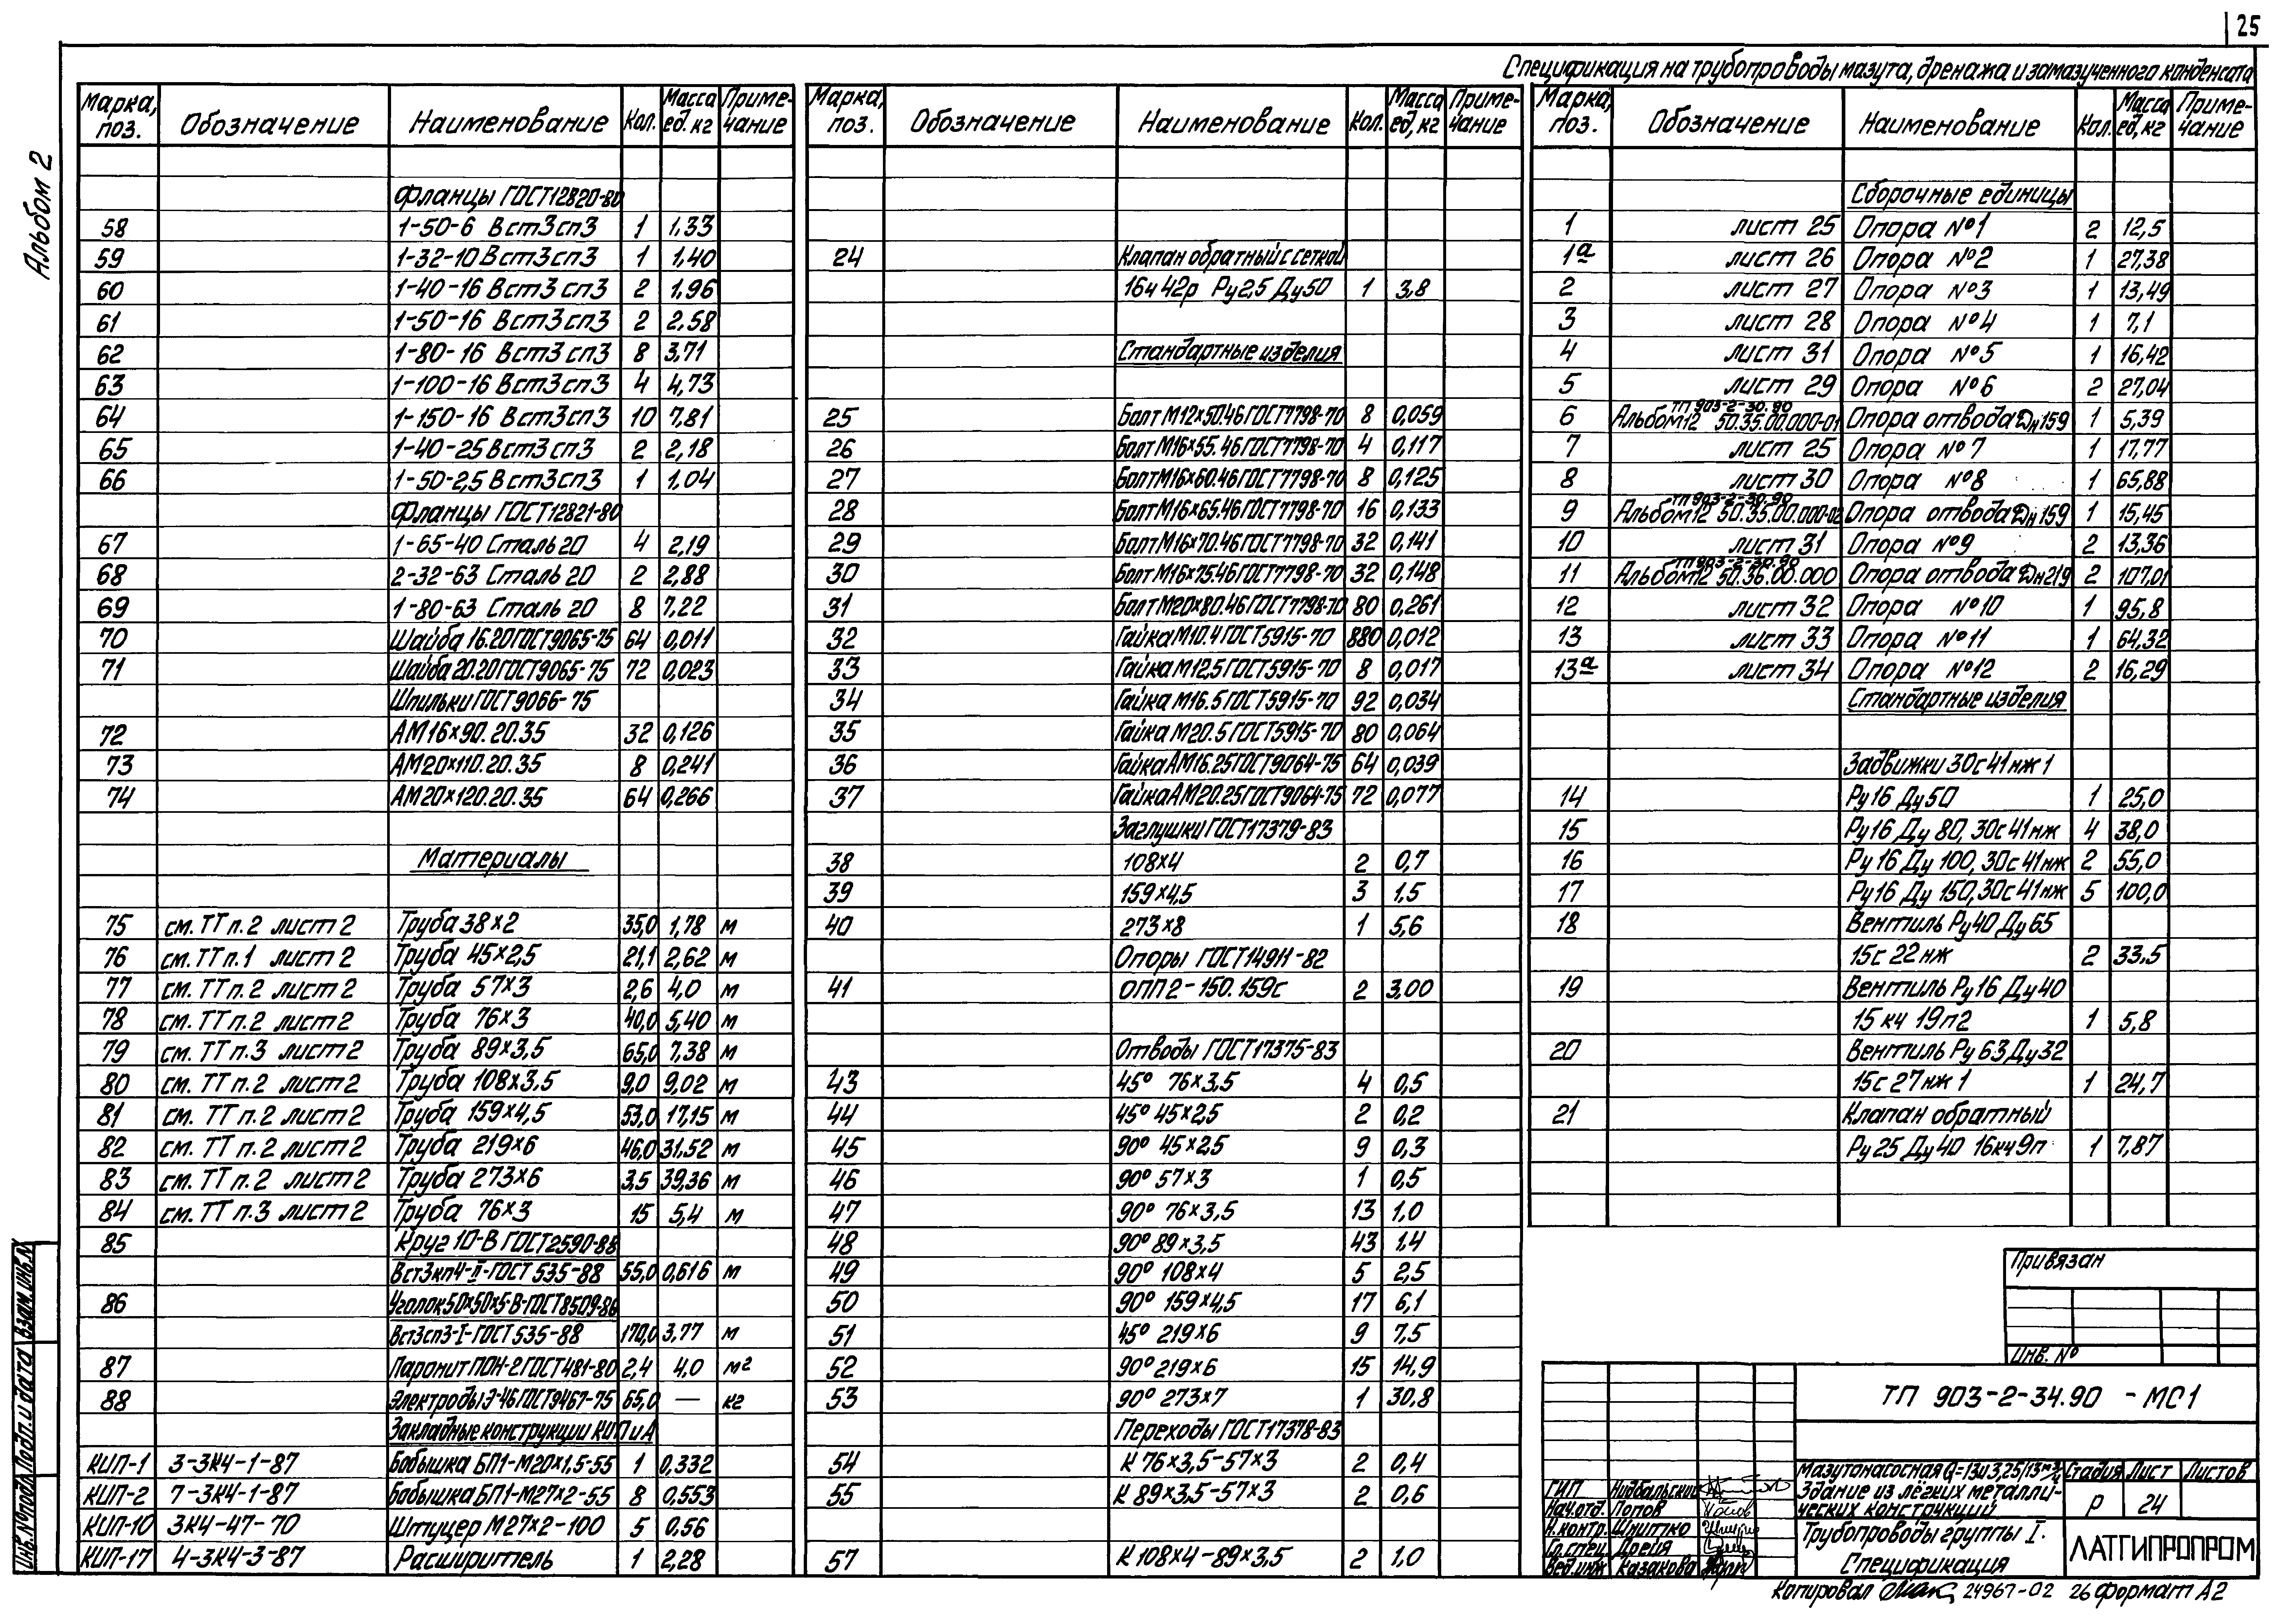 25
Спецификация на трубопроводы мазута, дренажа и замазученного конденсата
Альбом 2
Марка, поз. Обозначение Наименование Кол. Масса ед. кг Приме-чание
Фланцы ГОСТ12820-80
58 1-50-6 Вст3сп3 1 1,33
59 1-32-10 Вст3сп3 1 1,40
60 1-40-16 Вст3сп3 2 1,96
61 1-50-16 Вст3сп3 2 2,58
62 1-80-16 Вст3сп3 8 3,71
63 1-100-16 Вст3сп3 4 4,73
64 1-150-16 Вст3сп3 10 7,81
65 1-40-25 Вст3сп3 2 2,18
66 1-50-2,5 Вст3сп3 1 1,04
Фланцы ГОСТ12821-80
67 1-65-40 Сталь 20 4 2,19
68 2-32-63 Сталь 20 2 2,88
69 1-80-63 Сталь 20 8 7,22
70 Шайба 16.20ГОСТ9065-75 64 0,011
71 Шайба 20.20ГОСТ9065-75 72 0,023
Шпильки ГОСТ9066-75
72 АМ16×90.20.35 32 0,126
73 АМ20×110.20.35 8 0,241
74 АМ20×120.20.35 64 0,266
Материалы
75 см. ТТ п.2 лист 2 Труба 38×2 35,0 1,78 м
76 см. ТТ п.1 лист 2 Труба 45×2,5 21,1 2,62 м
77 см. ТТ п.2 лист 2 Труба 57×3 2,6 4,0 м
78 см. ТТ п.2 лист 2 Труба 76×3 40,0 5,40 м
79 см. ТТ п.3 лист 2 Труба 89×3,5 65,0 7,38 м
80 см. ТТ п.2 лист 2 Труба 108×3,5 9,0 9,02 м
81 см. ТТ п.2 лист 2 Труба 159×4,5 53,0 17,15 м
82 см. ТТ п.2 лист 2 Труба 219×6 46,0 31,52 м
83 см. ТТ п.2 лист 2 Труба 273×6 3,5 39,36 м
84 см. ТТ п.3 лист 2 Труба 76×3 15 5,4 м
85 Круг 10-В ГОСТ2590-88
Вст3кп4-II-ГОСТ 535-88 55,0 0,616 м
86 Уголок50×50×5-В-ГОСТ8509-86
Вст3сп3-I-ГОСТ 535-88 170,0 3,77 м
87 Паронит ПОН-2 ГОСТ481-80 2,4 4,0 м²
88 Электроды Э-46 ГОСТ9467-75 65,0 — кг
Закладные конструкции КИП и А
КИП-1 3-ЗК4-1-87 Бобышка БП1-М20×1,5-55 1 0,332
КИП-2 7-ЗК4-1-87 Бобышка БП1-М27×2-55 8 0,553
КИП-10 ЗК4-47-70 Штуцер М27×2-100 5 0,56
КИП-17 4-ЗК4-3-87 Расширитель 1 2,28
Марка, поз. Обозначение Наименование Кол. Масса ед, кг Приме-чание
24 Клапан обратный с сеткой
16ч42р Ру2,5 Ду50 1 3,8
Стандартные изделия
25 Болт М12×50.46ГОСТ7798-70 8 0,059
26 Болт М16×55.46ГОСТ7798-70 4 0,117
27 Болт М16×60.46ГОСТ7798-70 8 0,125
28 Болт М16×65.46ГОСТ7798-70 16 0,133
29 Болт М16×70.46ГОСТ7798-70 32 0,141
30 Болт М16×75.46ГОСТ7798-70 32 0,148
31 Болт М20×80.46ГОСТ7798-70 80 0,261
32 Гайка М10.4 ГОСТ5915-70 880 0,012
33 Гайка М12,5 ГОСТ5915-70 8 0,017
34 Гайка М16.5 ГОСТ5915-70 92 0,034
35 Гайка М20.5 ГОСТ5915-70 80 0,064
36 Гайка АМ16.25ГОСТ9064-75 64 0,039
37 Гайка АМ20.25ГОСТ9064-75 72 0,077
Заглушки ГОСТ17379-83
38 108×4 2 0,7
39 159×4,5 3 1,5
40 273×8 1 5,6
Опоры ГОСТ14911-82
41 ОПП2-150.159с 2 3,00
Отводы ГОСТ17375-83
43 45° 76×3,5 4 0,5
44 45° 45×2,5 2 0,2
45 90° 45×2,5 9 0,3
46 90° 57×3 1 0,5
47 90° 76×3,5 13 1,0
48 90° 89×3,5 43 1,4
49 90° 108×4 5 2,5
50 90° 159×4,5 17 6,1
51 45° 219×6 9 7,5
52 90° 219×6 15 14,9
53 90° 273×7 1 30,8
Переходы ГОСТ17378-83
54 К 76×3,5-57×3 2 0,4
55 К 89×3,5-57×3 2 0,6
57 К 108×4-89×3,5 2 1,0
Марка, поз. Обозначение Наименование Кол. Масса ед, кг Приме-чание
Сборочные единицы
1 лист 25 Опора №1 2 12,5
1а лист 26 Опора №2 1 27,38
2 лист 27 Опора №3 1 13,49
3 лист 28 Опора №4 1 7,1
4 лист 31 Опора №5 1 16,42
5 лист 29 Опора №6 2 27,04
6 ТП 903-2-30.90 Альбом12 50.35.00.000-01 Опора отвода Дн159 1 5,39
7 лист 25 Опора №7 1 17,77
8 лист 30 Опора №8 1 65,88
9 ТП 903-2-30.90 Альбом12 50.35.00.000-02 Опора отвода Дн159 1 15,45
10 лист 31 Опора №9 2 13,36
11 ТП 903-2-30.90 Альбом12 50.36.00.000 Опора отвода Дн219 2 107,01
12 лист 32 Опора №10 1 95,8
13 лист 33 Опора №11 1 64,32
13а лист 34 Опора №12 2 16,29
Стандартные изделия
Задвижки 30с41нж1
14 Ру16 Ду50 1 25,0
15 Ру16 Ду 80, 30с41нж 4 38,0
16 Ру16 Ду 100, 30с41нж 2 55,0
17 Ру16 Ду 150, 30с41нж 5 100,0
18 Вентиль Ру40 Ду65
15с22нж 2 33,5
19 Вентиль Ру16 Ду40
15кч19п2 1 5,8
20 Вентиль Ру63 Ду32
15с27нж1 1 24,7
21 Клапан обратный
Ру25 Ду40 16кч9п 1 7,87
Привязан
Инв. №
ТП 903-2-34.90 -МС1
Мазутонасосная Q=13и3,25/13м³/ч
Здание из лёгких металли-
ческих конструкций
Стадия Лист Листов
Р 24
Трубопроводы группы I.
Спецификация
ЛАТГИПРОПРОМ
ГИП Нидбальский
Нач.отд. Попов
Н.контр. Шнитко
Гл.спец. Дрейя
Вед.инж Казакова
Инв.№подл. Подп. и дата Взам.инв.№
Копировал 24967-02 26 формат А2